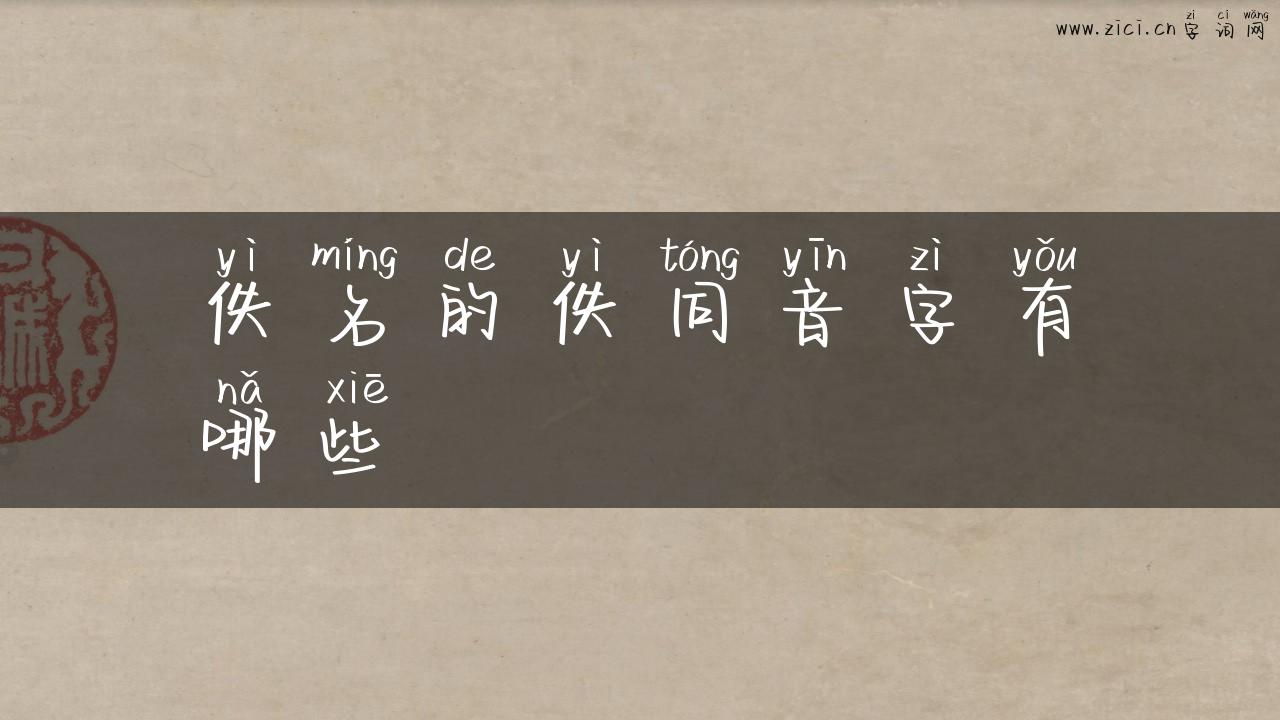 zì cí wǎng
www.zici.cn 字词网
yì míng de yì tóng yīn zì yǒu
佚名的佚同音字有
nǎ xiē
哪些